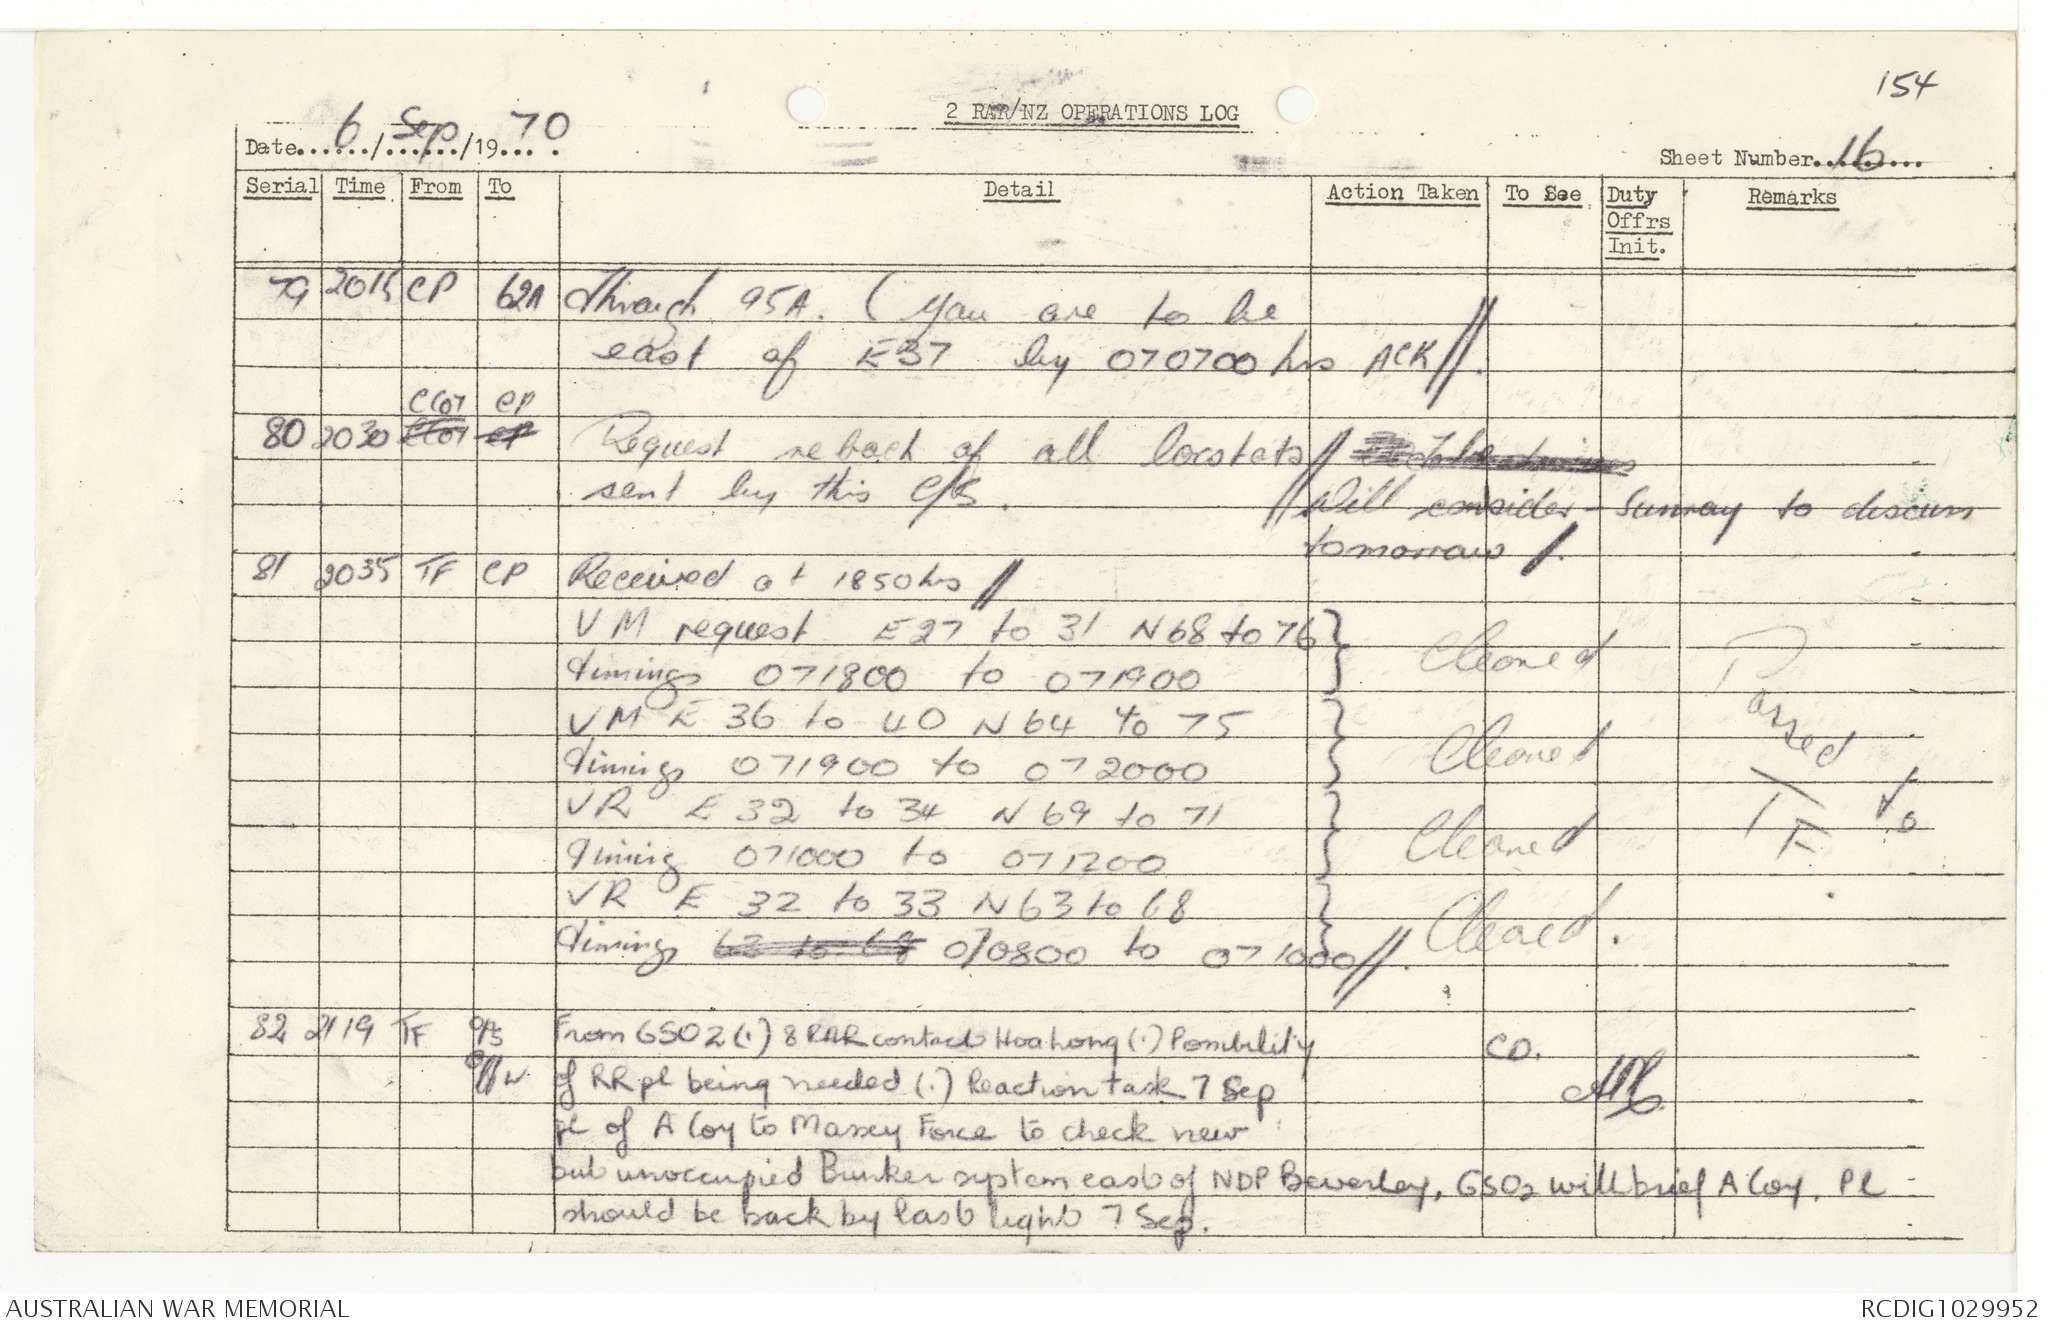 154
2 RAR/NZ OPERATIONS LOG
Date 6 / Sep / 19 70
Sheet Number 16
Serial Time From To Detail Action Taken To See Duty Offrs Init. Remarks
79 2015 CP 62A through 95A. (You are to be
east of E37 by 070700 hrs ACK//.
CC07 CP
80 2030 Request reback of all locstats //
sent by this C/S. // Will consider - Sunray to discuss
tomorrow /.
81 2035 TF CP Received at 1850hrs //
VM request E27 to 31 N68 to 76 } Cleared
timings 071800 to 071900
VM E 36 to 40 N64 to 75 } Cleared
timings 071900 to 072000
VR E 32 to 34 N 69 to 71 } Cleared
timing 071000 to 071200
VR E 32 to 33 N63 to 68 } Cleared.
timings 63 to 68 070800 to 071000//.
Passed to TF
82 2119 TF From GSO2 (.) 8 RAR contact Hoa Long (.) Possibility CO.
of RR pl being needed (.) Reaction task 7 Sep
pl of A Coy to Massey Force to check new
but unoccupied Bunker system east of NDP Beverley, GSO2 will brief A Coy. Pl
should be back by last light 7 Sep.
AUSTRALIAN WAR MEMORIAL
RCDIG1029952